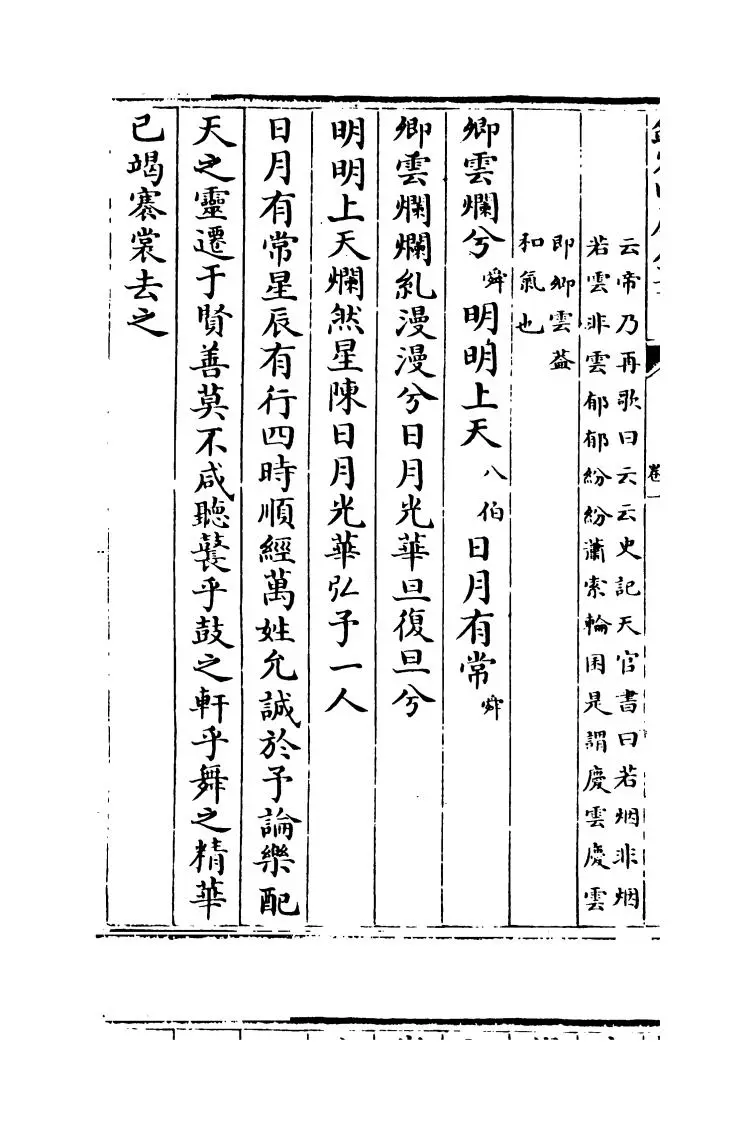 卷一
云帝乃再歌曰云云史記天官書曰若烟非烟
若雲非雲郁郁紛紛蕭索輪囷是謂慶雲慶雲
即卿雲蓋
和氣也
卿雲爛兮 舜 明明上天 八伯 日月有常 舜
卿雲爛爛糺漫漫兮日月光華旦復旦兮
明明上天爛然星陳日月光華弘予一人
日月有常星辰有行四時順經萬姓允誠於予論樂配
天之靈遷于賢善莫不咸聽鼚乎鼓之軒乎舞之精華
已竭褰裳去之